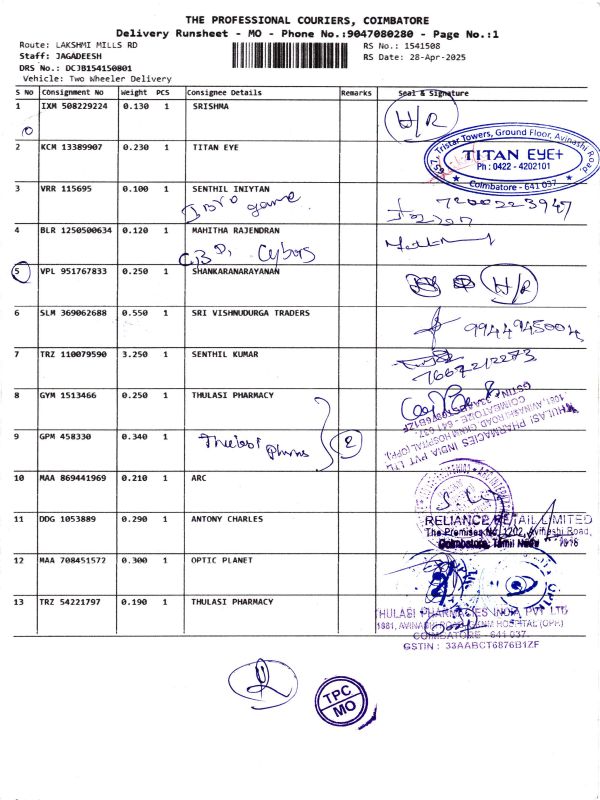 THE PROFESSIONAL COURIERS, COIMBATORE
Delivery Runsheet - MO - Phone No.:9047080280 - Page No.:1
Route: LAKSHMI MILLS RD
RS No.: 1541508
Staff: JAGADEESH
RS Date: 28-Apr-2025
DRS No.: DCJB154150801
Vehicle: Two Wheeler Delivery
S No Consignment No Weight PCS Consignee Details Remarks Seal & Signature
1 IXM 508229224 0.130 1 SRISHMA H/R
2 KCM 13389907 0.230 1 TITAN EYE
657, Tristar Towers, Ground Floor, Avinashi Road,
TITAN EYE+
Ph : 0422 - 4202101
Coimbatore - 641 037
3 VRR 115695 0.100 1 SENTHIL INIYTAN
game 7200223947
4 BLR 1250500634 0.120 1 MAHITHA RAJENDRAN
5 VPL 951767833 0.250 1 SHANKARANARAYANAN H/R
6 SLM 369062688 0.550 1 SRI VISHNUDURGA TRADERS
7 TRZ 110079590 3.250 1 SENTHIL KUMAR
7667212273
8 GYM 1513466 0.250 1 THULASI PHARMACY
THULASI PHARMACIES INDIA PVT LTD
1081, AVINASHI ROAD GKNM HOSPITAL (OPP.)
COIMBATORE - 641 037.
9 GPM 458330 0.340 1 Thulasi 2
10 MAA 869441969 0.210 1 ARC
11 DDG 1053889 0.290 1 ANTONY CHARLES
RELIANCE RETAIL LIMITED
The Premises No. 1202, Avinashi Road,
Coimbatore, Tamil Nadu
12 MAA 708451572 0.300 1 OPTIC PLANET
13 TRZ 54221797 0.190 1 THULASI PHARMACY
THULASI PHARMACIES INDIA PVT LTD
1081, AVINASHI ROAD GKNM HOSPITAL (OPP.)
COIMBATORE - 641 037
GSTIN : 33AABCT6876B1ZF
TPC
MO